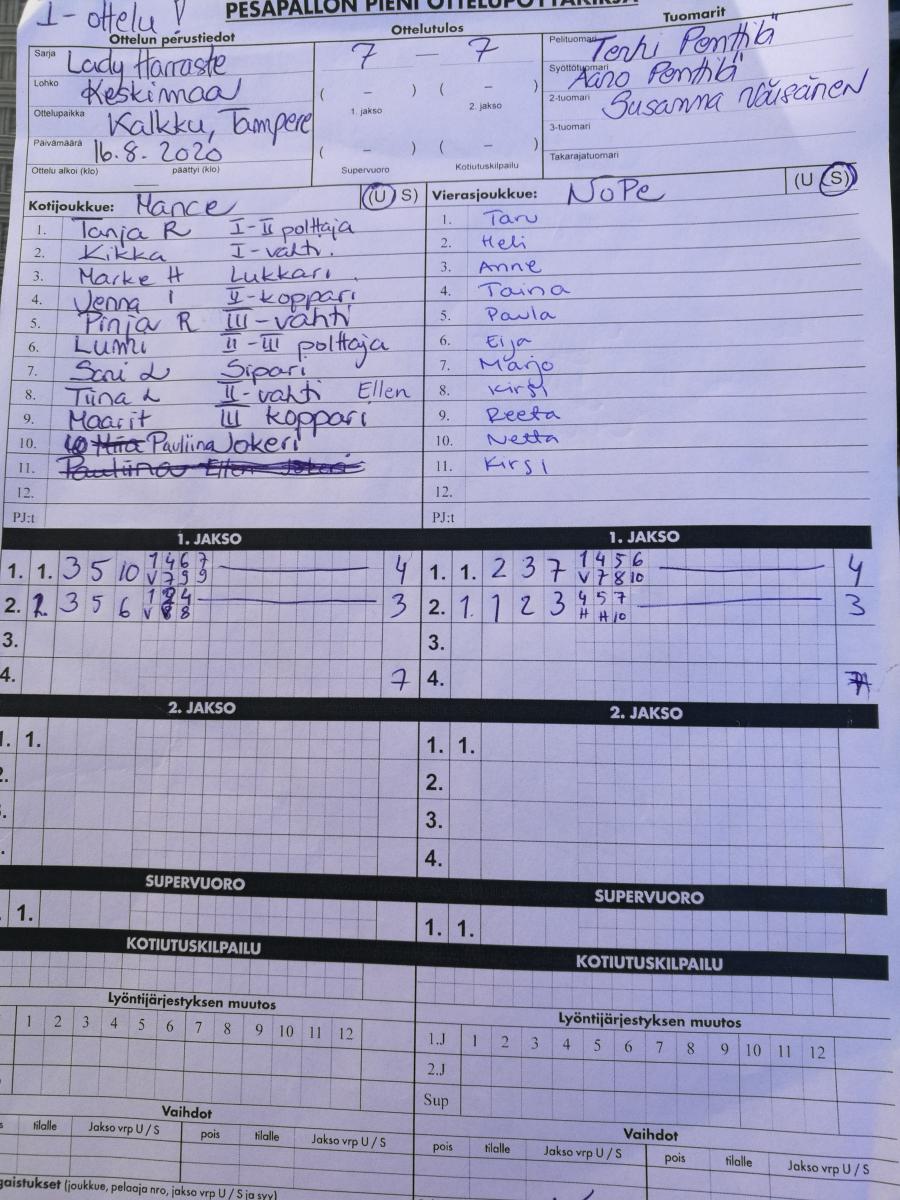 I - ottelu
PESÄPALLON PIENI OTTELUPÖYTÄKIRJA
Ottelun perustiedot
Ottelutulos
Tuomarit
Sarja Lady Harraste
7 - 7
Pelituomari Terhi Penttilä
Lohko Keskimaa
( - ) ( - )
Syöttötuomari Aaro Penttilä
1. jakso 2. jakso
2-tuomari Susanna Väisänen
Ottelupaikka Kalkku, Tampere
3-tuomari
Päivämäärä 16.8. 2020
( - ) ( - )
Takarajatuomari
Ottelu alkoi (klo) — päättyi (klo)
Supervuoro Kotiutuskilpailu
Kotijoukkue: Mance (U S)
1. Tanja R I-II polttaja
2. Kikka I-vahti.
3. Marke H Lukkari
4. Jenna I II-koppari
5. Pinja R III-vahti
6. Lumi II-III polttaja
7. Sari L Sipari
8. Tiina L II-vahti Ellen
9. Maarit III koppari
10. Pauliina Jokeri
11. Pauliina Ellen Jokeri
12.
PJ:t
Vierasjoukkue: NoPe (U S)
1. Taru
2. Heli
3. Anne
4. Taina
5. Paula
6. Eija
7. Marjo
8. Kirsi
9. Reeta
10. Netta
11. Kirsi
12.
PJ:t
1. JAKSO
1. 1. 3 5 10 1 4 6 7 4
V 7 9 9
2. 1. 3 5 6 1 2 4 3
V 8 8
3.
4. 7
1. JAKSO
1. 1. 2 3 7 1 4 5 6 4
V 7 8 10
2. 1. 1 2 3 4 5 7 3
H H 10
3.
4. 7
2. JAKSO
1. 1.
2.
.
.
2. JAKSO
1. 1.
2.
3.
4.
SUPERVUORO
. 1.
SUPERVUORO
1. 1.
KOTIUTUSKILPAILU
KOTIUTUSKILPAILU
Lyöntijärjestyksen muutos
1 2 3 4 5 6 7 8 9 10 11 12
Lyöntijärjestyksen muutos
1.J 1 2 3 4 5 6 7 8 9 10 11 12
2.J
Sup
Vaihdot
tilalle Jakso vrp U / S pois tilalle Jakso vrp U / S
Vaihdot
pois tilalle Jakso vrp U / S pois tilalle Jakso vrp U / S
gaistukset (joukkue, pelaaja nro, jakso vrp U / S ja syy)